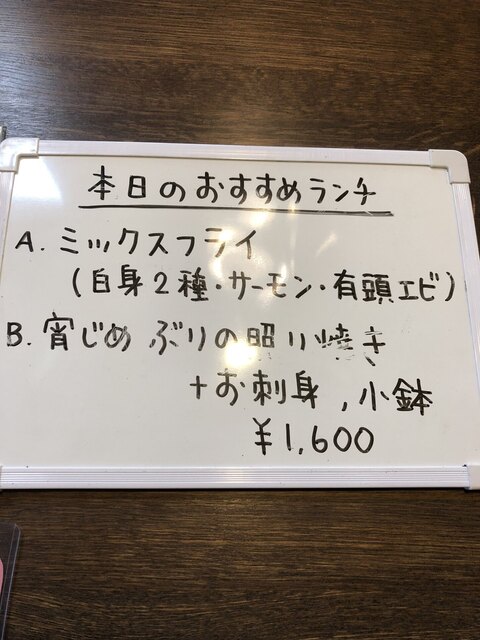 本日のおすすめランチ
A. ミックスフライ
(白身2種・サーモン・有頭エビ)
B. 宵じめ ぶりの照り焼き
+お刺身, 小鉢
¥1,600